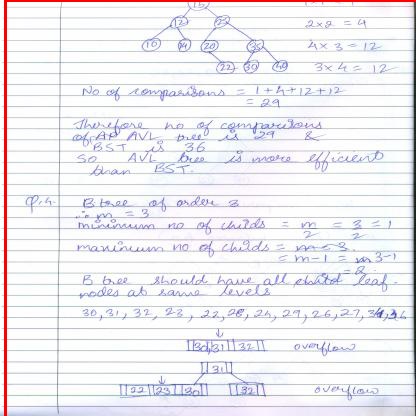 15
12 25 2×2 = 4
10 14 20 35 4×3 = 12
22 30 40 3×4 = 12
No of comparisons = 1+4+12+12
= 29
Therefore no of comparisons
of AVL tree is 29 &
BST is 36
So AVL tree is more efficient
than BST.
Q.4. B tree of order 3
∴ m = 3
minimum no of childs = m/2 = 3/2 = 1
maximum no of childs =
= m-1 = 3-1
= 2
B tree should have all leaf
nodes at same levels
30, 31, 32, 23, 22, 28, 24, 29, 26, 27, 34, 36
30 31 32 overflow
31
22 23 30 32 overflow